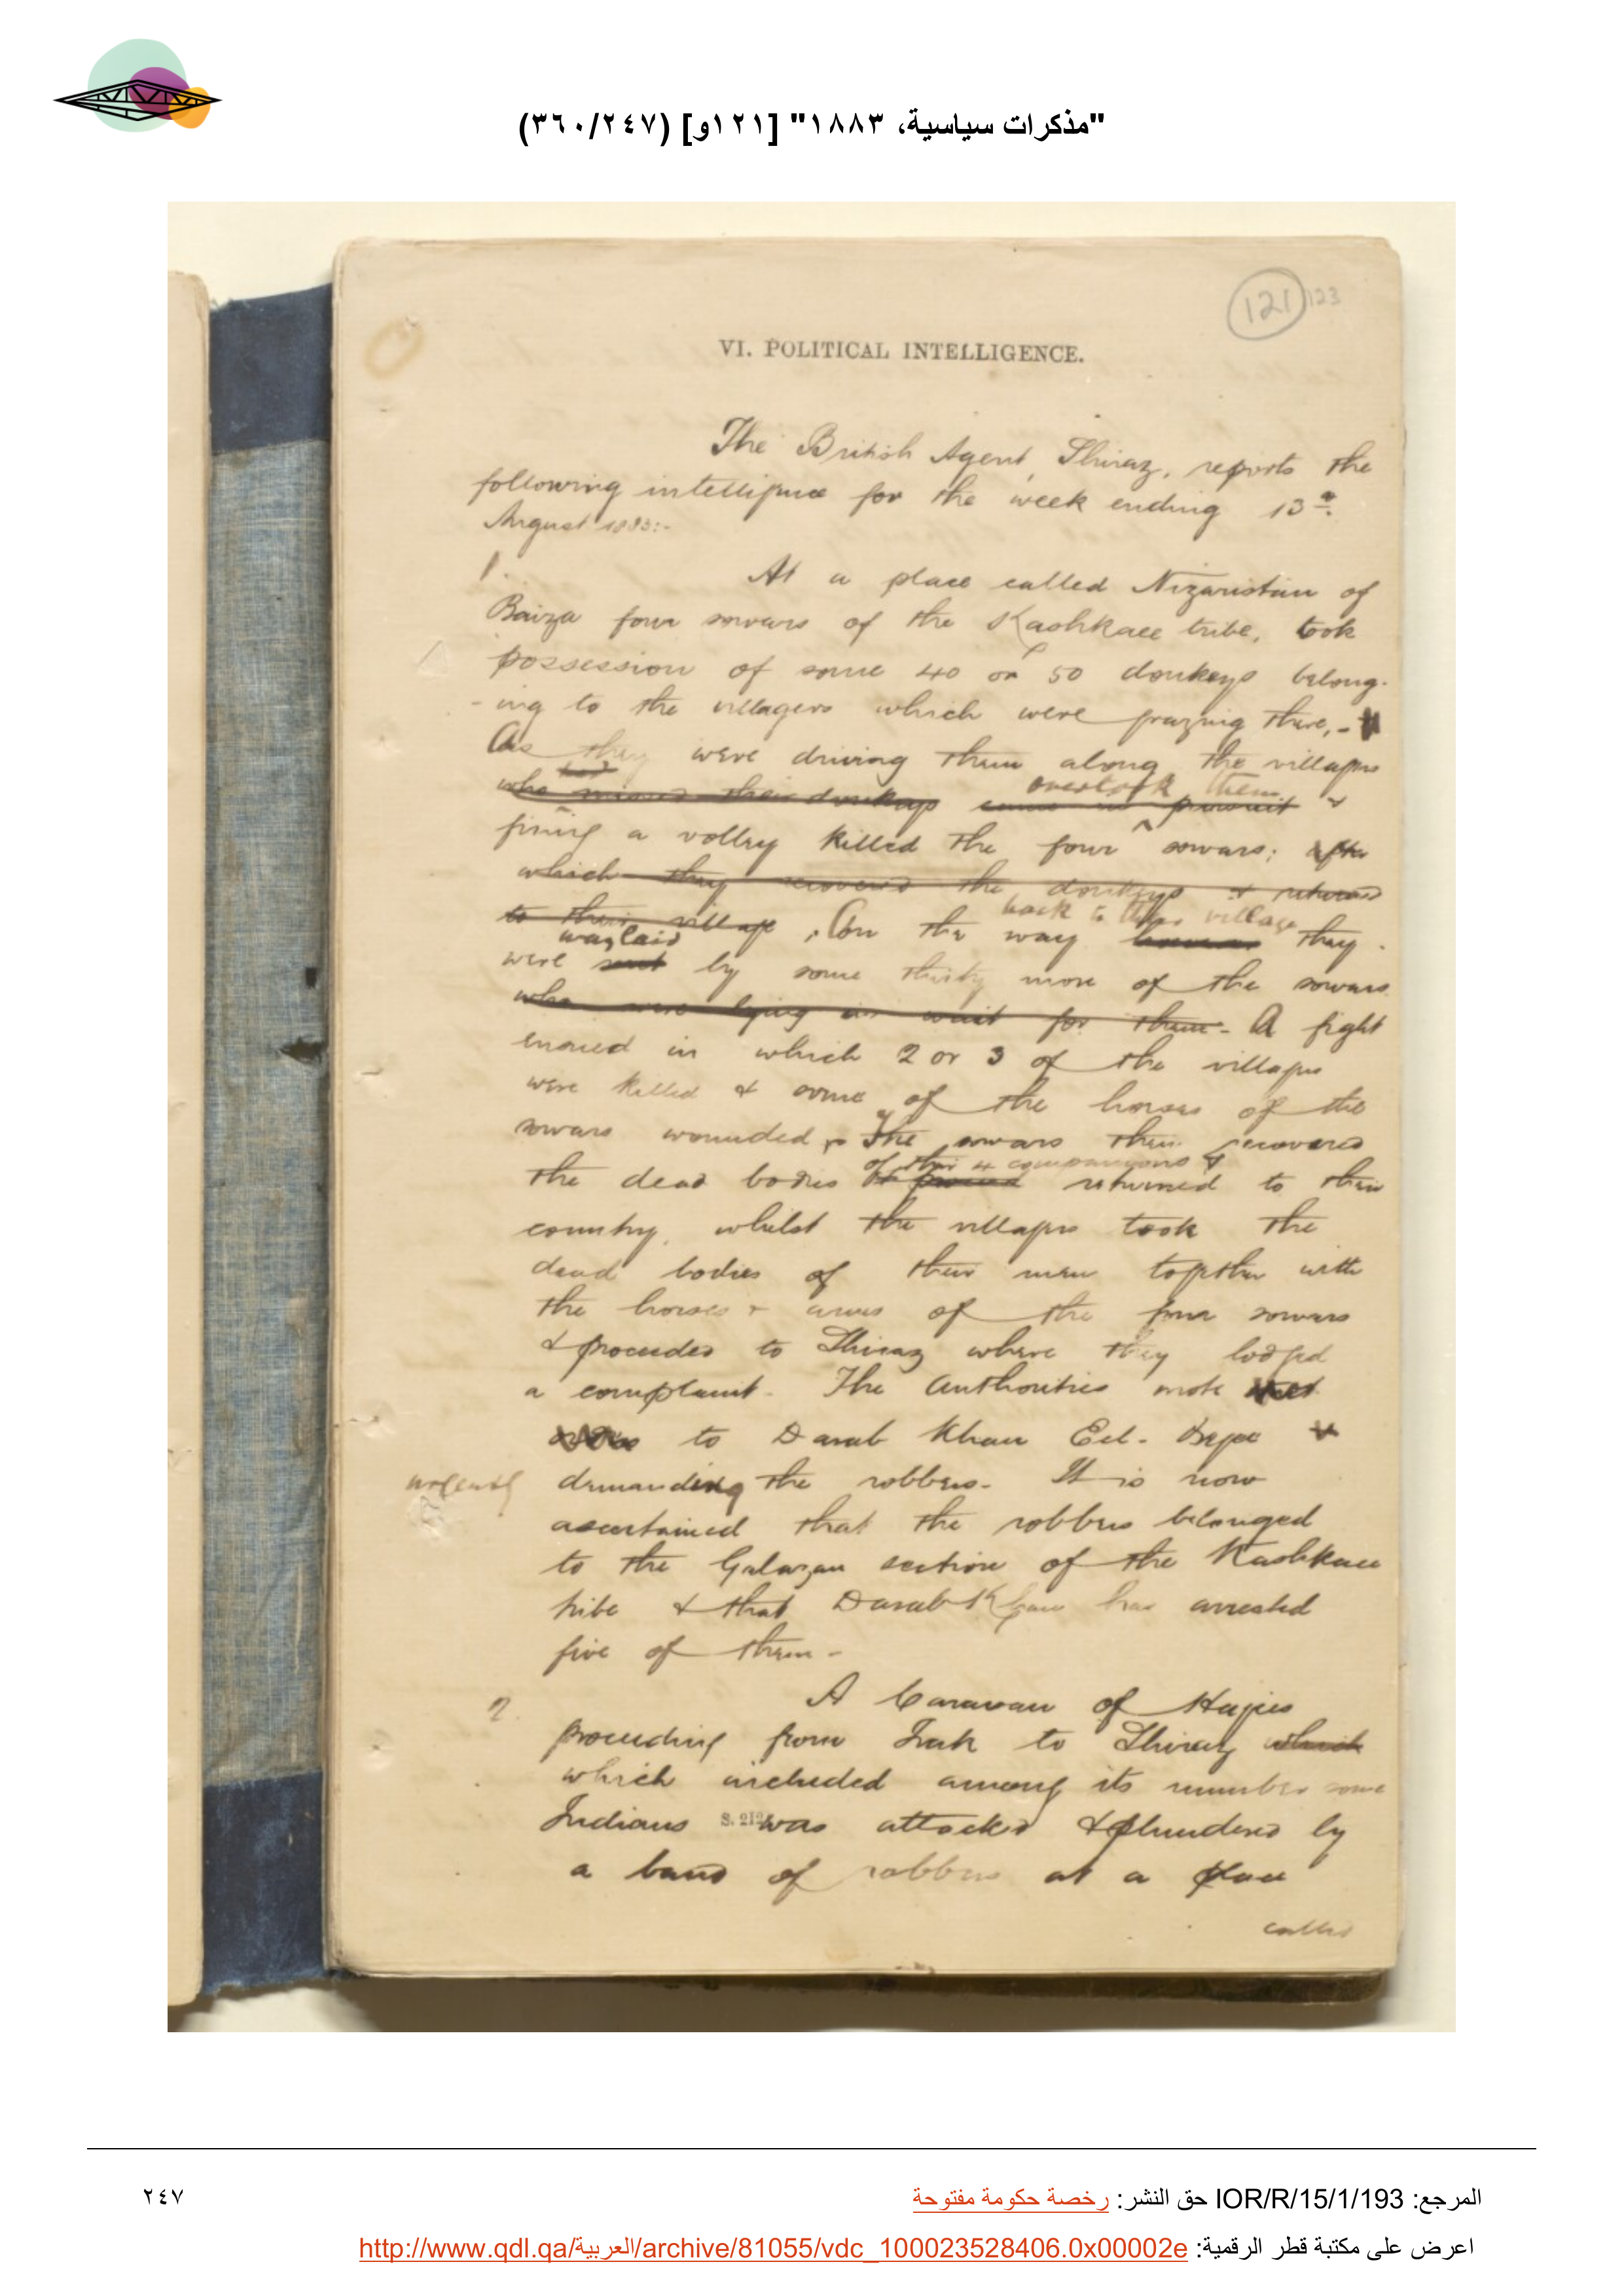 "مذكرات سياسية، ١٨٨٣" [١٢١و] (٣٦٠/٢٤٧)
121 123
VI. POLITICAL INTELLIGENCE.
The British Agent, Shiraz, reports the
following intelligence for the week ending 13th
August 1883:-
1. At a place called Nizaristan of
Baiza four sowars of the Kashkaee tribe, took
possession of some 40 or 50 donkeys belong-
-ing to the villagers which were grazing there,-
As they were driving them along the villagers
had overtook them
who missed their donkeys came in pursuit &
firing a volley killed the four sowars; after
which they recovered the donkeys & returned
to their village. On the way back to their village they
were waylaid by some thirty more of the sowars
who were lying in wait for them - A fight
ensued in which 2 or 3 of the villagers
were killed & some of the horses of the
sowars wounded, The sowars then recovered
of their 4 companions &
the dead bodies returned to their
country, whilst the villagers took the
dead bodies of their men together with
the horses & arms of the four sowars
& proceeded to Shiraz where they lodged
a complaint. The Authorities wrote
to Darab Khan Eel-Begee
urgently demanding the robbers. It is now
ascertained that the robbers belonged
to the Galazan section of the Kashkaee
tribe & that Darab Khan has arrested
five of them -
2. A Caravan of Hajies
proceeding from Irak to Shiraz which
which included among its number some
Indians S. 212 was attacked & plundered by
a band of robbers at a place
called
المرجع: IOR/R/15/1/193 حق النشر: رخصة حكومة مفتوحة
٢٤٧
اعرض على مكتبة قطر الرقمية: http://www.qdl.qa/العربية/archive/81055/vdc_100023528406.0x00002e